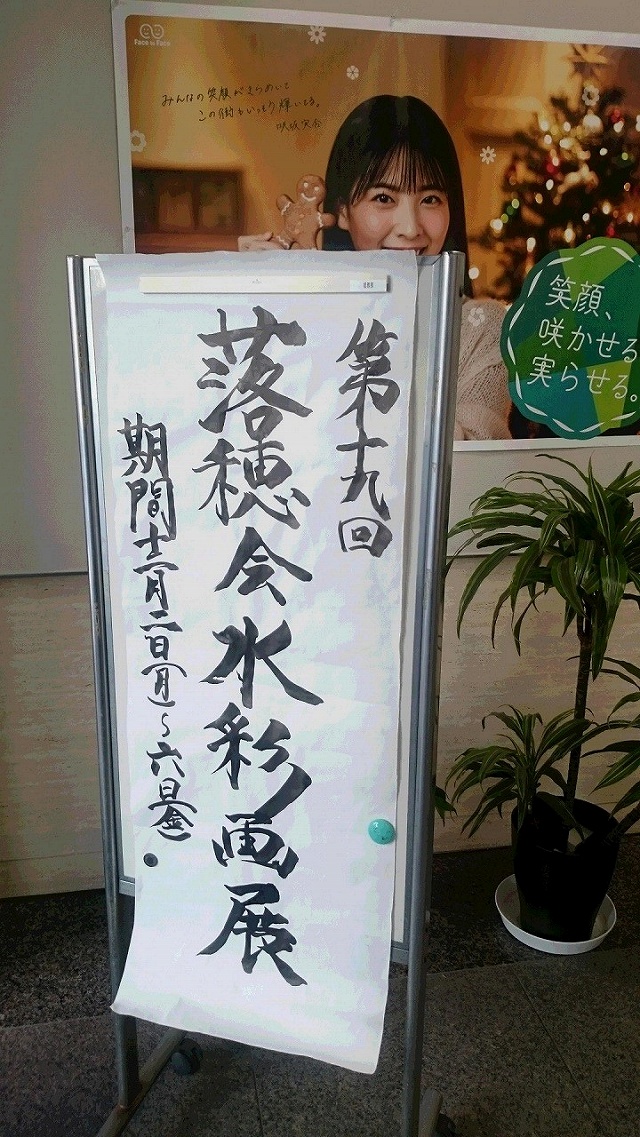 第十九回
落穂会水彩画展
期間十二月二日(月)~六日(金)
Face to Face
みんなの笑顔がきらめいて
この街もいっそう輝いてる。
笑顔、
咲かせる
実らせる。